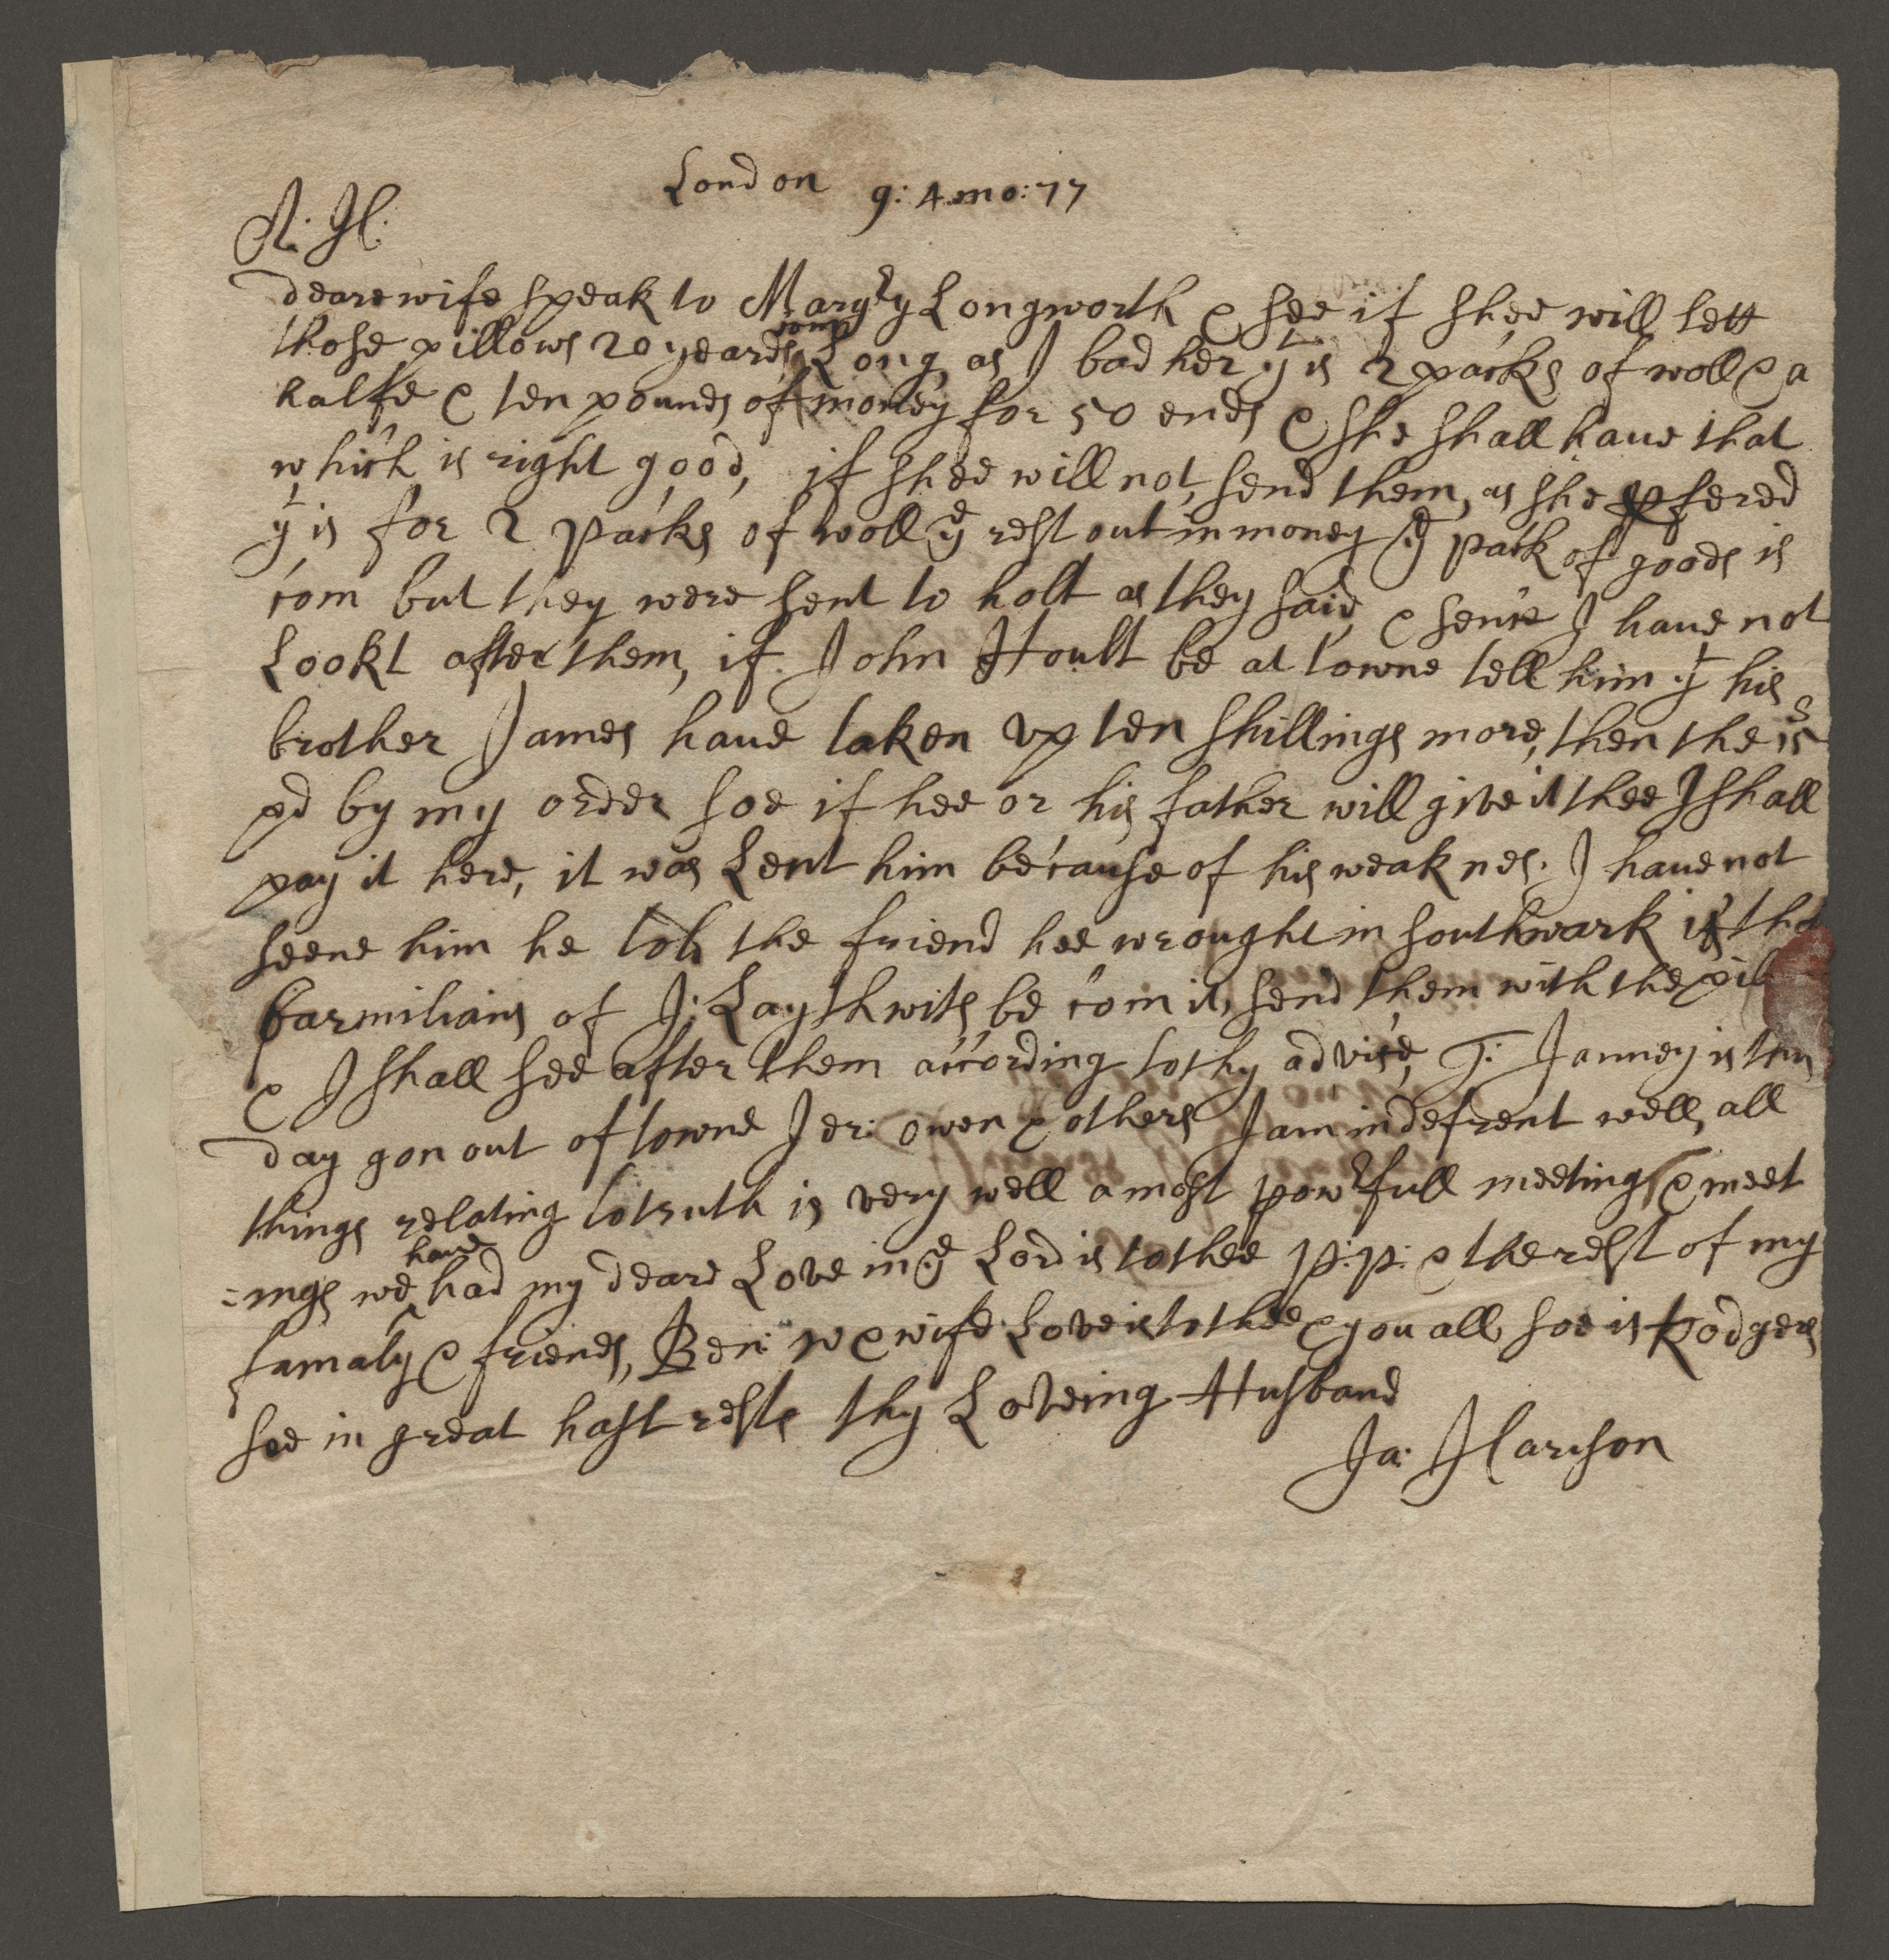 London 9: 4 mo: 77
A: H:
deare wife speak to Margry Longworth & see if shee will lett
those pillows 20 yeards Long, as I bad her yt is 2 packs of woll & a
halfe & ten pounds of money for 50 ends & she shall haue that
which is right good, if shee will not, send them, as she pfered
yt is for 2 packs of woll ye rest out in money ye pack of goods is
com but they were sent to holt as they said & sence I haue not
Lookt after them, if John Hoult be at towne tell him yt his
brother James haue taken vp ten shillings more, then the
pd by my order soe if hee or his father will give it thee I shall
pay it here, it was Lent him because of his weaknes. I haue not
seene him he the friend hee wrought in southwark if the
barmilians of J: Laythwits be com in, send them with the pil
& I shall see after them according to thy advise, T: Janney is this
day gon out of towne Jer: owen & others I am indefrent well, all
things relating to truth is very well a most powrfull meeting & meet
=ings we haue had my deare Love in ye Lord is to thee p:p: & the rest of my
famaly & friends, Ben: w & wife Love is to thee & you all soe is Rodgers
soe in great hast rests thy Loveing Husband
Ja: Harison